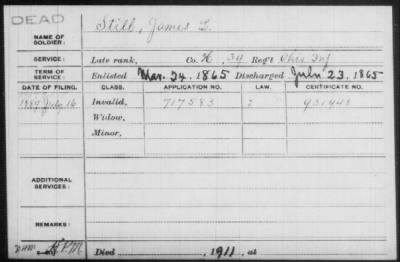 DEAD
Still, James L.
NAME OF SOLDIER:
SERVICE: Late rank, Co. H, 39 Reg't Ohio Inf
TERM OF SERVICE: Enlisted Mar. 24, 1865 Discharged July 23, 1865
DATE OF FILING. CLASS. APPLICATION NO. LAW. CERTIFICATE NO.
1889 July 16 Invalid, 717583
Widow,
Minor,
ADDITIONAL SERVICES:
REMARKS:
Died 1911, at